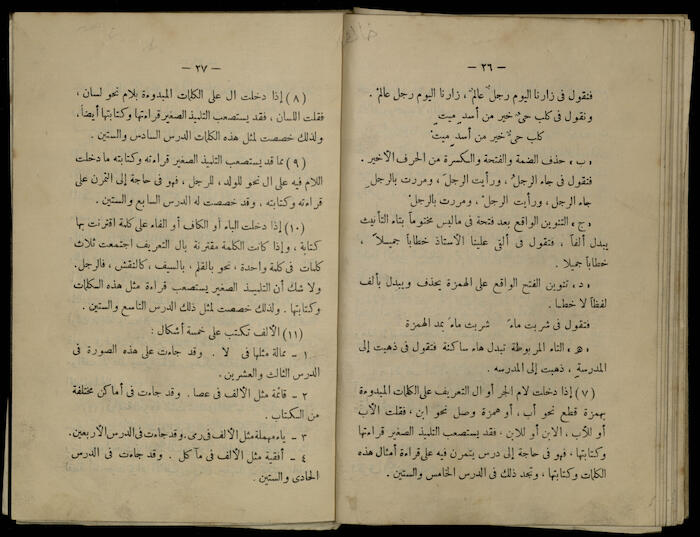 — ٢٦ —
فنقول فى زارنا اليوم رجلٌ عالمٌ ، زارنا اليوم رجل عالم .
ونقول فى كلب حىٌ خير من أسدٍ ميتٍ
كلب حىٌ خير من أسدٍ ميت
« ب » حذف الضمة والفتحة والكسرة من الحرف الأخير .
فنقول فى جاء الرجلُ ، ورأيت الرجلَ ، ومررت بالرجلِ
جاء الرجل ، ورأيت الرجلْ ، ومررت بالرجلْ
« ج » التنوين الواقع بعد فتحة فى ماليس مختوماً بتاء التأنيث
يبدل ألفاً ، فتقول فى ألقى علينا الأستاذ خطاباً جميلاً ،
خطاباً جميلا .
« د » تنوين الفتح الواقع على الهمزة يحذف ويبدل بألف
لفظاً لا خطا .
فنقول فى شربت ماءً شربت ماء بمد الهمزة
« ه » التاء المربوطة تبدل هاء ساكنة فتقول فى ذهبت إلى
المدرسةِ ، ذهبت إلى المدرسه .
(٧) إذا دخلت لام الجر أو ال التعريف على الكلمات المبدوءة
بهمزة قطع نحو أب ، أو همزة وصل نحو ابن ، فقلت الأب
أو للأب ، الابن أو للابن ، فقد يستصعب التلميذ الصغير قراءتها
وكتابتها ، فهو فى حاجة إلى درس يتمرن فيه على قراءة أمثال هذه
الكلمات وكتابتها ، وتجد ذلك فى الدرس الخامس والستين .
— ٢٧ —
(٨) إذا دخلت ال على الكلمات المبدوءة بلام نحو لسان ،
فقلت اللسان ، فقد يستصعب التلميذ الصغير قراءتها وكتابتها أيضاً ،
ولذلك خصصت لمثل هذه الكلمات الدرس السادس والستين .
(٩) مما قد يستصعب التلميذ الصغير قراءته وكتابته ما دخلت
اللام فيه على ال نحو للولد ، للرجل ، فهو فى حاجة إلى التمرن على
قراءته وكتابته ، وقد خصصت له الدرس السابع والستين .
(١٠) إذا دخلت الباء أو الكاف أو الفاء على كلمة اقترنت بها
كتابة ، وإذا كانت الكلمة مقترنة بال التعريف اجتمعت ثلاث
كلمات فى كلمة واحدة ، نحو بالقلم ، بالسيف ، كالنقش ، فالرجل .
ولا شك أن التلميذ الصغير يستصعب قراءة مثل هذه الكلمات
وكتابتها . ولذلك خصصت لمثل ذلك الدرس التاسع والستين .
(١١) الألف تكتب على خمسة أشكال :
١ - ممالة مثلها فى لا . وقد جاءت على هذه الصورة فى
الدرس الثالث والعشرين .
٢ - قائمة مثل الألف فى عصا . وقد جاءت فى أماكن مختلفة
من الكتاب .
٣ - ياء مهملة مثل الألف فى رمى . وقد جاءت فى الدرس الأربعين .
٤ - أفقية مثل الألف فى مآكل . وقد جاءت فى الدرس
الحادى والستين .